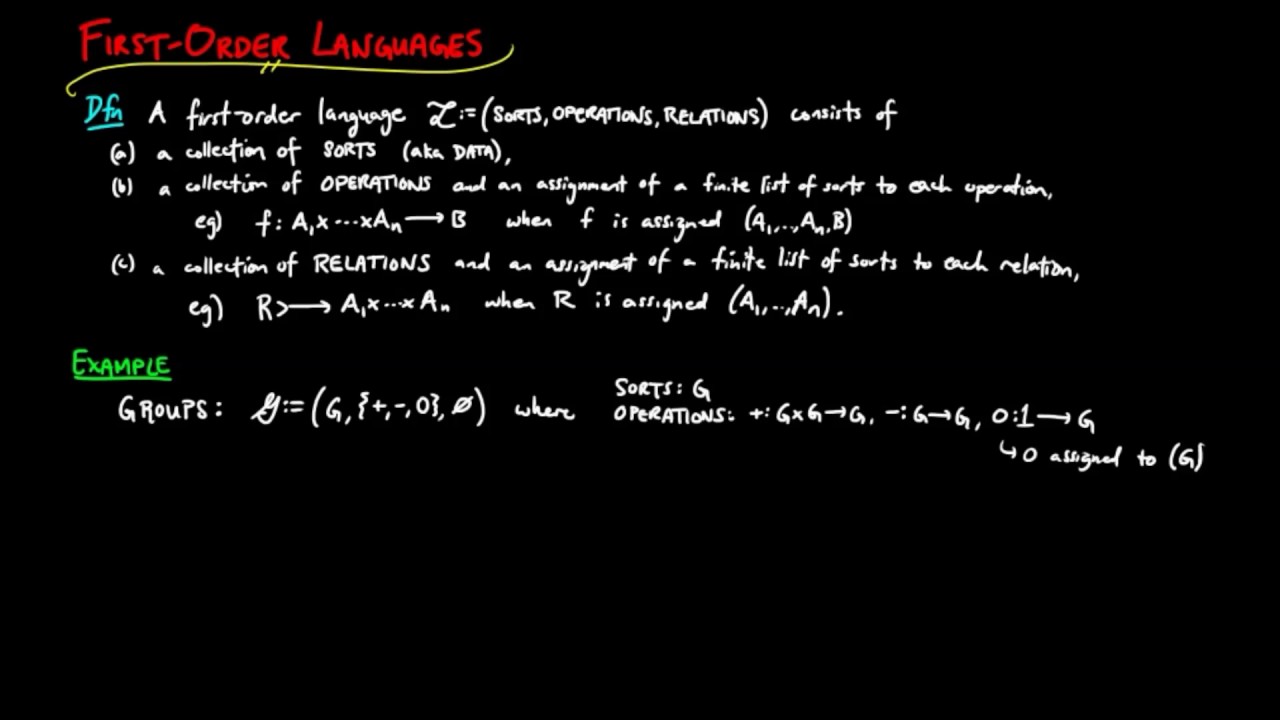 FIRST-ORDER LANGUAGES
Dfn A first-order language ℒ:=(SORTS, OPERATIONS, RELATIONS) consists of
(a) a collection of SORTS (aka DATA),
(b) a collection of OPERATIONS and an assignment of a finite list of sorts to each operation,
eg) f: A₁×···×Aₙ → B when f is assigned (A₁,..,Aₙ,B)
(c) a collection of RELATIONS and an assignment of a finite list of sorts to each relation,
eg) R>→ A₁×···×Aₙ when R is assigned (A₁,..,Aₙ).
EXAMPLE
GROUPS: 𝒢:=(G, {+,-,0}, ∅) where
SORTS: G
OPERATIONS: +: G×G→G, -: G→G, 0:1→G
↳ 0 assigned to (G)